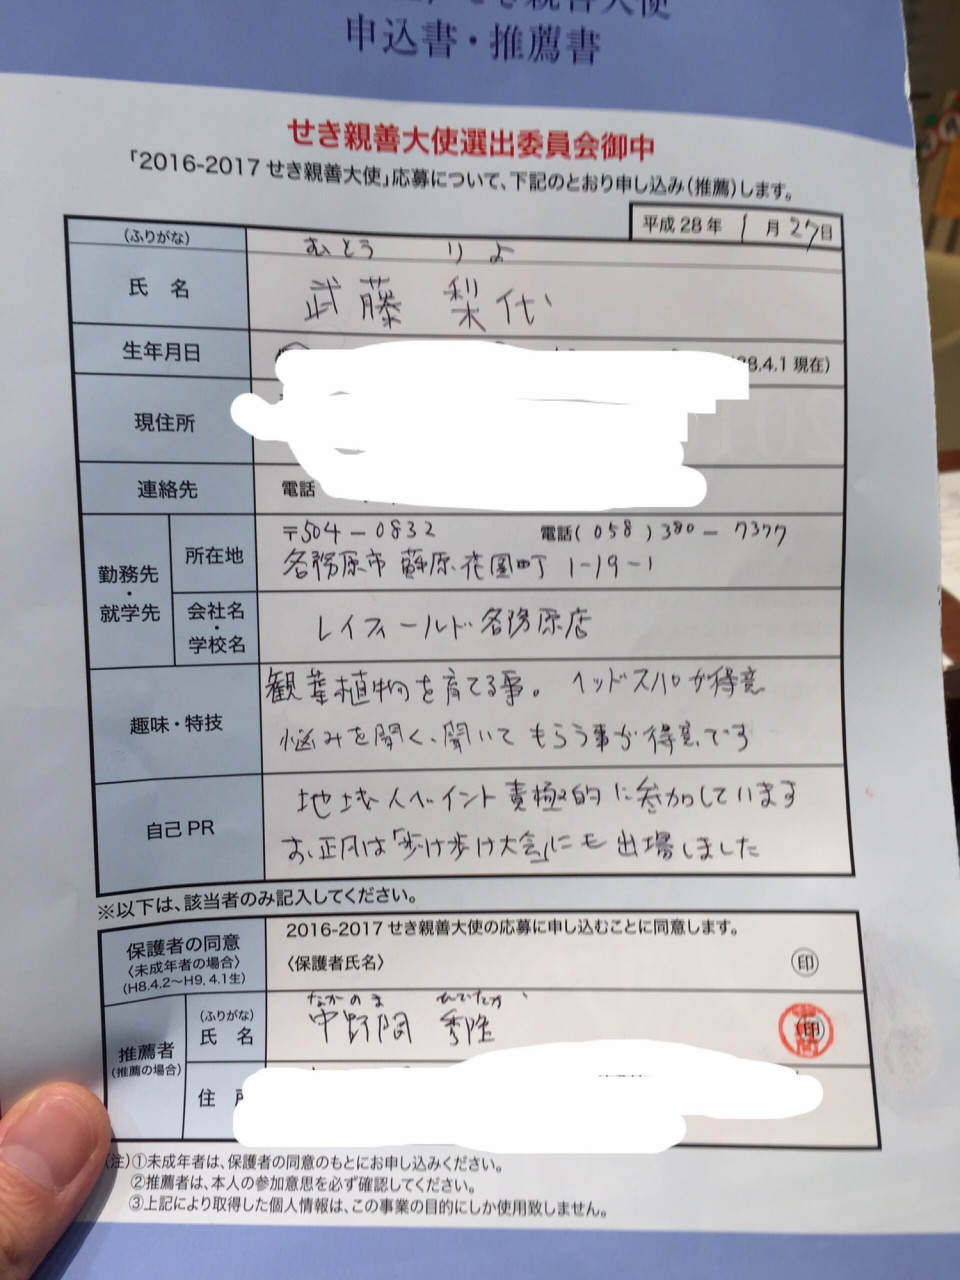 せき親善大使
申込書・推薦書
せき親善大使選出委員会御中
「2016-2017せき親善大使」応募について、下記のとおり申し込み(推薦)します。
平成28年 1月27日
(ふりがな) むとう りよ
氏 名 武藤 梨代
生年月日 4.1現在)
現住所
連絡先 電話
勤務先・就学先
所在地 〒504-0832 電話(058)380-7377
各務原市 蘇原花園町 1-19-1
会社名・学校名 レイフィールド各務原店
趣味・特技 観葉植物を育てる事。 ヘッドスパが得意
悩みを聞く、聞いてもらう事が得意です
自己PR 地域イベント責極的に参加しています
お正月は「歩け歩け大会」にも出場しました
※以下は、該当者のみ記入してください。
保護者の同意
〈未成年者の場合〉
(H8.4.2〜H9.4.1生)
2016-2017せき親善大使の応募に申し込むことに同意します。
〈保護者氏名〉 印
推薦者
(推薦の場合)
(ふりがな) なかのま ひでたか
氏 名 中野間 秀隆 印
住
(注)①未成年者は、保護者の同意のもとにお申し込みください。
②推薦者は、本人の参加意思を必ず確認してください。
③上記により取得した個人情報は、この事業の目的にしか使用致しません。